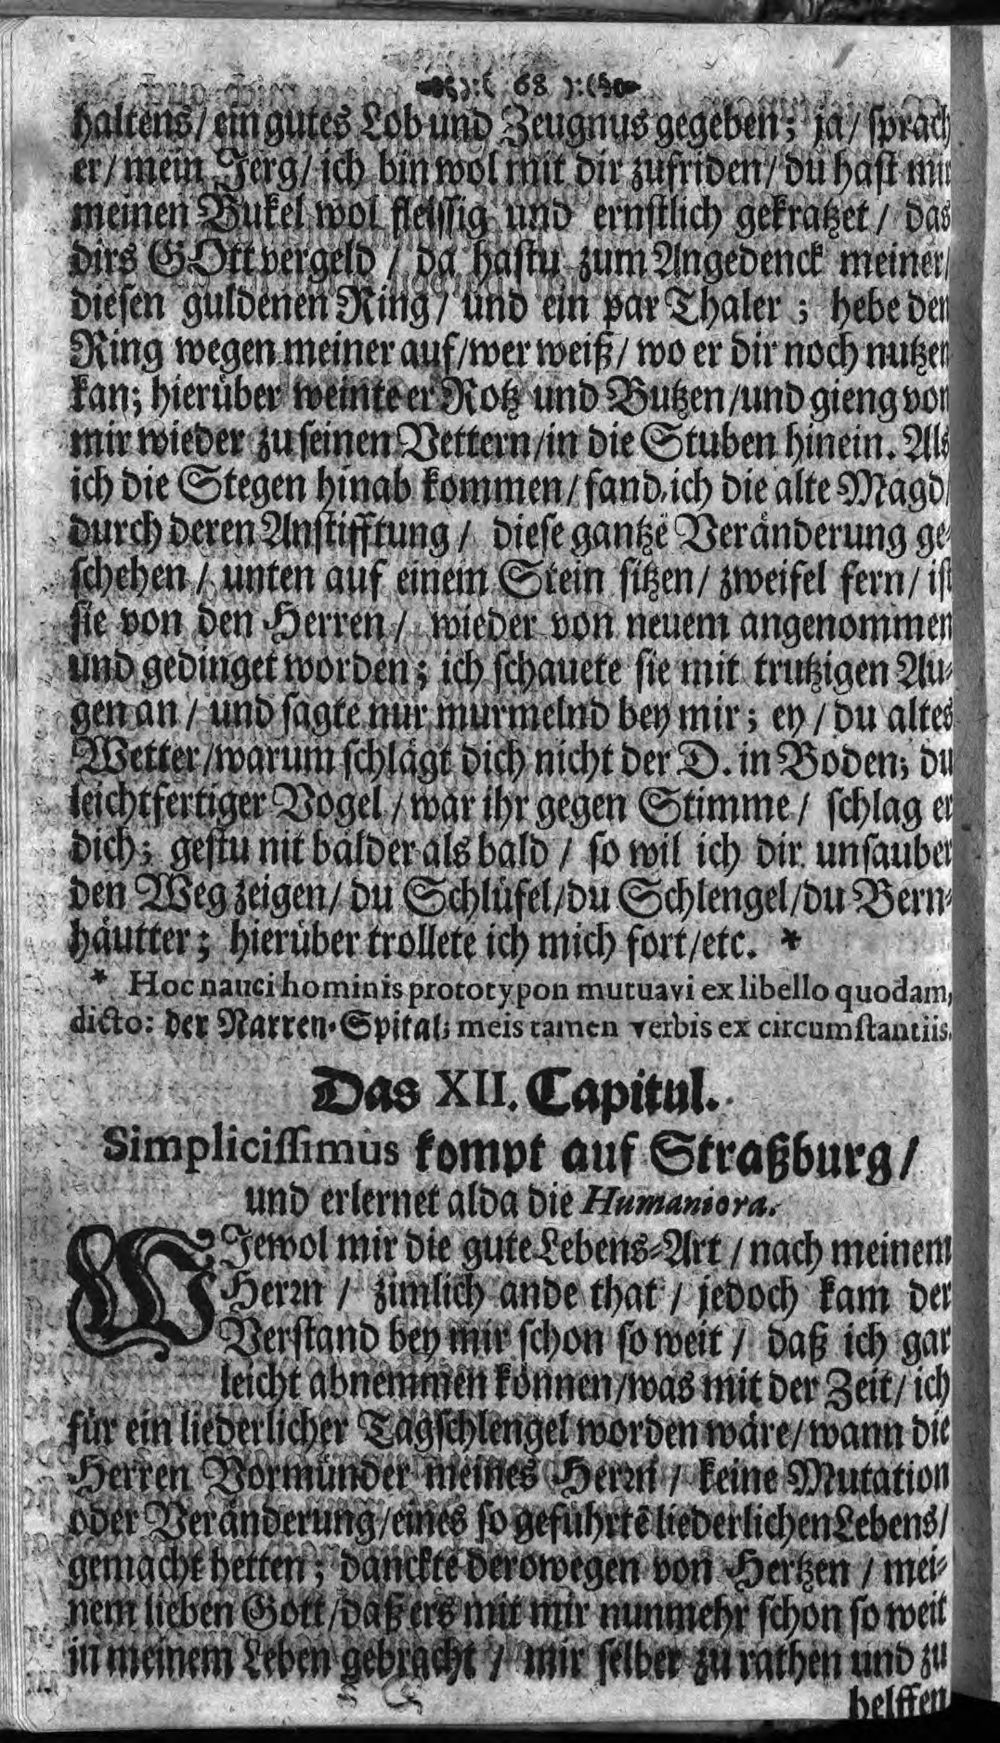 68
haltens / ein gutes Lob und Zeugnus gegeben; ja / sprach
er / mein Jerg / ich bin wol mit dir zufriden / du hast mir
meinen Bukel wol fleissig und ernstlich gekratzet / das
dirs GOtt vergeld / da hastu zum Angedenck meiner /
diesen guldenen Ring / und ein par Thaler ; hebe den
Ring wegen meiner auf / wer weiß / wo er dir noch nutzen
kan; hierüber weinte er Rotz und Butzen / und gieng von
mir wieder zu seinen Vettern / in die Stuben hinein. Als
ich die Stegen hinab kommen / fand ich die alte Magd /
durch deren Anstifftung / diese gantze Veränderung ge-
schehen / unten auf einem Stein sitzen / zweifel fern / ist
sie von den Herren / wieder von neuem angenommen
und gedinget worden; ich schauete sie mit trutzigen Au-
gen an / und sagte nur murmelnd bey mir; ey / du altes
Wetter / warum schlägt dich nicht der D. in Boden; du
leichtfertiger Vogel / war ihr gegen Stimme / schlag er
dich; gestu nit bälder als bald / so wil ich dir unsauber
den Weg zeigen / du Schlüfel / du Schlengel / du Bern-
häutter; hierüber trollete ich mich fort / etc. *
* Hoc nauci hominis prototypon mutuavi ex libello quodam,
dicto: der Narren-Spital; meis tamen verbis ex circumstantiis.
Das XII. Capitul.
Simplicissimus kompt auf Straßburg /
und erlernet alda die Humaniora.
WJewol mir die gute Lebens-Art / nach meinem
Herrn / zimlich ande that / jedoch kam der
Verstand bey mir schon so weit / daß ich gar
leicht abnemmen können / was mit der Zeit / ich
für ein liederlicher Tagschlengel worden wäre / wann die
Herren Vormünder meines Herrn / keine Mutation
oder Veränderung / eines so geführtē liederlichen Lebens /
gemacht hetten; danckte derowegen von Hertzen / mei-
nem lieben Gott / daß ers mit mir nunmehr schon so weit
in meinem Leben gebracht / mir selber zu rathen und zu
helffen